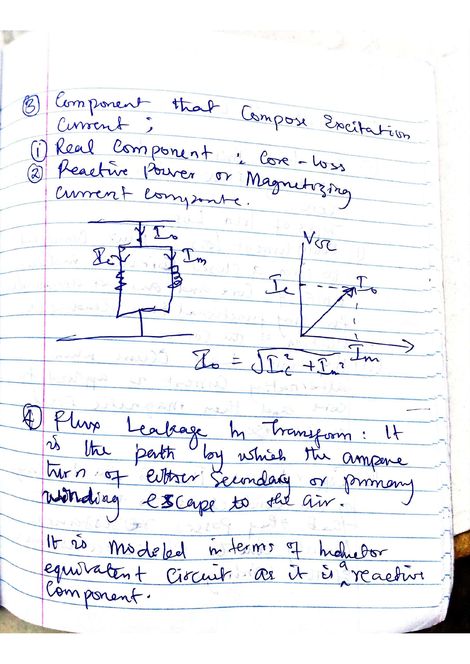 ③ Component that Compose Excitation
Current;
① Real Component : Core-Loss
② Reactive Power or Magnetizing
Current componte.
I₀
Ic Im
Ic I₀
Im
I₀ = √Ic² + Im²
④ Flux Leakage In Transform: It
is the path by which the ampere
turn of either Secondary or primary
winding escape to the air.
It is modeled in terms of Inductor
equivalent Circuit as it is a reactive
Component.